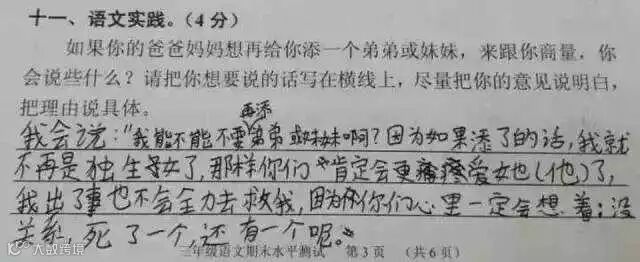 十一、语文实践。(4分)
如果你的爸爸妈妈想再给你添一个弟弟或妹妹，来跟你商量，你
会说些什么？请把你想要说的话写在横线上，尽量把你的意见说明白，
把理由说具体。
再添
我会说："我能不能不要弟弟或妹妹啊？因为如果添了的话，我就
不再是独生子女了，那样你们肯定会更疼爱她(他)了，
我出了事也不会全力去救我，因为你们心里一定会想着：没
关系，死了一个，还有一个呢。"
三年级语文期末水平测试 第3页 (共6页)
大数跨境